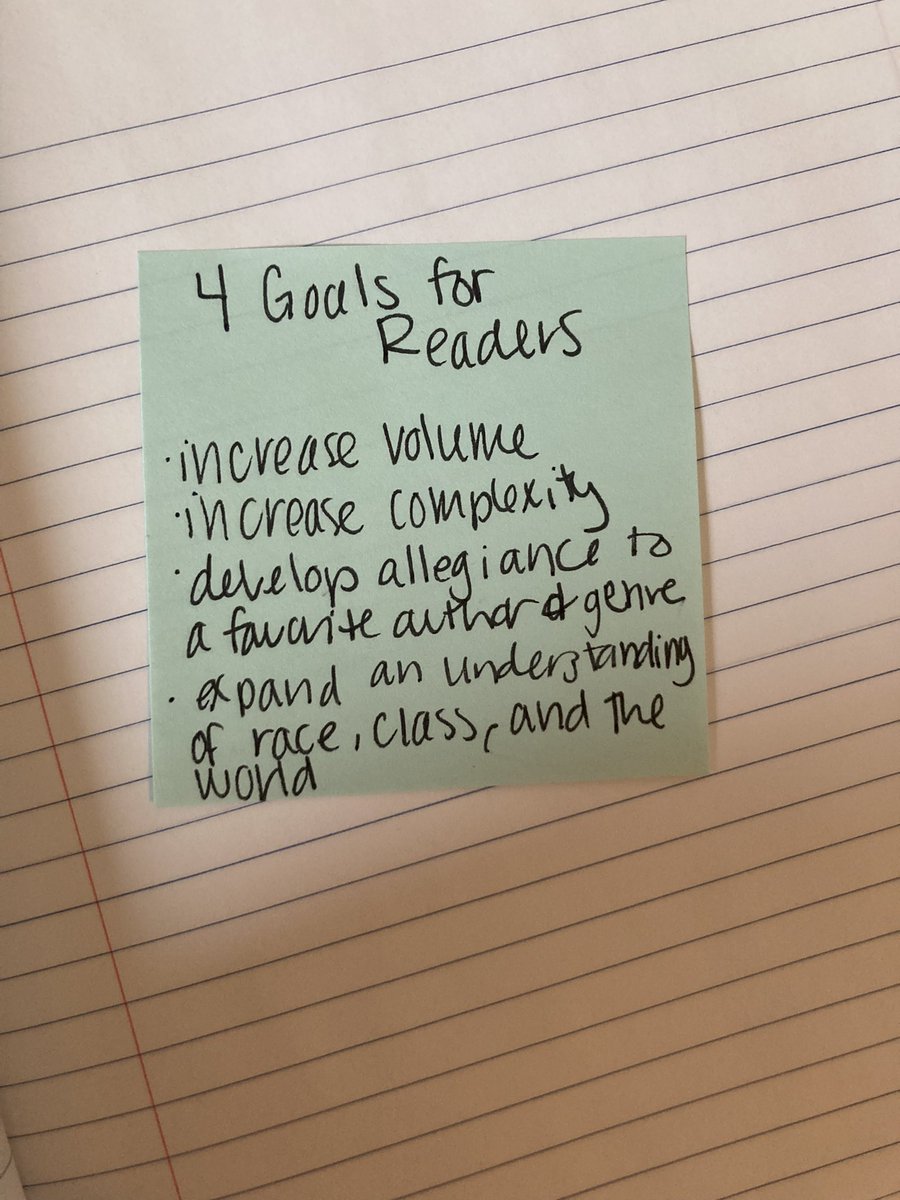 4 Goals for
Readers
· increase volume
· increase complexity
· develop allegiance to
a favorite author & genre
· expand an understanding
of race, class, and the
world